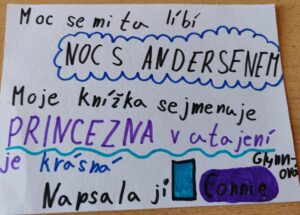 Moc se mi tu líbí
NOC S ANDERSENEM
Moje knížka se jmenuje
PRINCEZNA v utajení
je krásná
Napsala ji Connie
Glynn-
ová